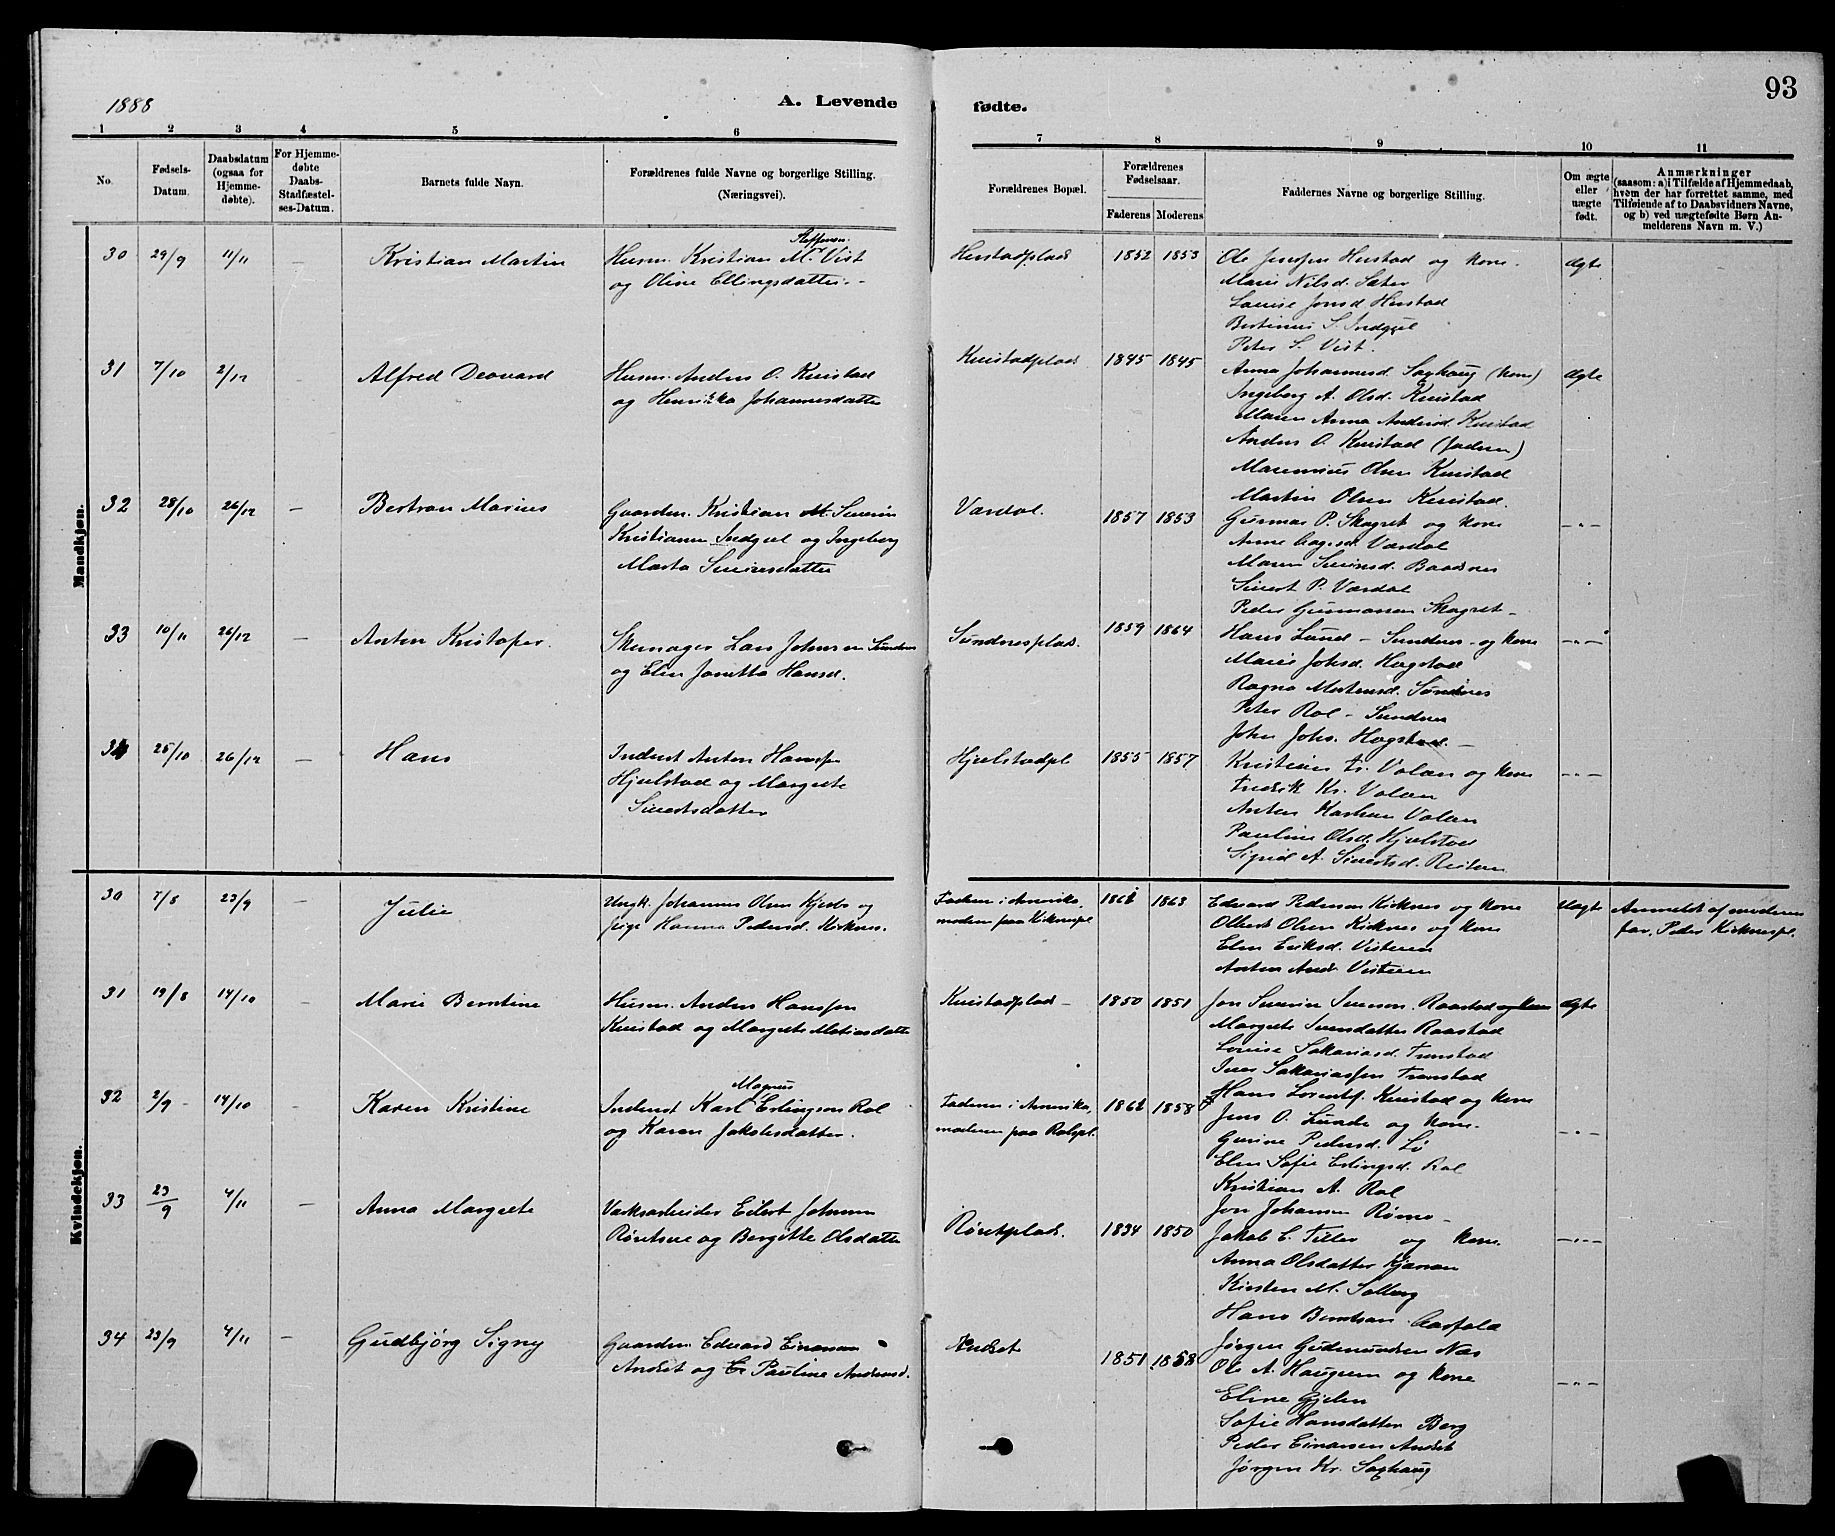 1888
A. Levende
fødte.
93
1 2 3 4 5 6 7 8 9 10 11
No.
Fødsels-
Datum.
Daabsdatum
(ogsaa for
Hjemme-
døbte).
For Hjemme-
døbte
Daabs-
Stadfæstel-
ses-Datum.
Barnets fulde Navn.
Forældrenes fulde Navne og borgerlige Stilling.
(Næringsvei).
Forældrenes Bopæl.
Forældrenes
Fødselsaar.
Faderens Moderens
Faddernes Navne og borgerlige Stilling.
Om ægte
eller
uægte
født.
Anmærkninger
(saasom: a) i Tilfælde af Hjemmedaab,
hvem der har forrettet samme, med
Tilføiende af to Daabsvidners Navne,
og b) ved uægtefødte Børn An-
melderens Navn m. V.)
Mandkjøn.
30 29/9 11/11 — Kristian Martin
Husm. Kristian M. Steffensen Vist
og Oline Ellingsdatter
Herstadplads 1852 1853
Ole Jensen Herstad og kone
Marie Nilsd. Sæter
Louise Jonsd Herstad
Bertinus S. Indgjel
Peter S. Vist.
Ægte
31 7/10 2/12 Alfred Deovard
Husm. Anders O. Kuistad
og Henrikka Johannesdatter
Kuistadplads 1845 1845
Anna Johannesd. Saghaug (kone)
Ingeborg A. Olsd. Kuistad
Maren Anna Andersd Kuistad
Anders O. Kuistad (faderen)
Marennius Olsen Kuistad
Martin Olsen Kuistad.
Ægte
32 28/10 26/12 — Bertran Marius
Gaardm. Kristian M. Severin
Kristiansen Indgjel og Ingeborg
Marta Sivertsdatter
Værdal. 1857 1853
Gunnar P. Skagset og kone
Anne Aagesd. Værdal
Maren Sivertsd. Baadsnes
Sivert P. Værdal
Peder Gunnarsen Skagset
— „ —
33 10/11 26/12 — Anton Kristofer.
Skomager Lars Johnsen Sundnes
og Elen Jonetta Hansd.
Sundnesplads. 1859 1864
Hans Lund - Sundnes - og kone
Marie Johsd. Hogstad
Ragna Mortensd. Sundnes
Peter Rol - Sundnes
John Johs. Hogstad.
— „ —
34 25/10 26/12 — Hans
Inderst Anton Hanssen
Hjelstad og Margrete
Sivertsdatter
Hjelstadpl 1855 1857
Kristian Fr. Volan og kone
Fredrik Kr. Volan
Anton Karlsen Volan
Pauline Olsd. Hjelstad
Sigrid A. Sivertsd. Reistan
— „ —
Kvindekjøn.
30 7/8 23/9 Julie
Ungk. Johannes Olsen Kjerbo og
pige Hanna Pedersd. Kirknes.
Faderen i Amerika,
moderen paa Kirknespl 1861 1863
Edvard Pedersen Kirknes og kone
Olbert Olsen Kirknes og kone
Elen Eriksd. Visteren
Anton Andr. Visteren
Uægte
Anmeldt af moderens
far, Peder Kirknespl.
31 19/8 14/10 — Marie Berntine
Husm. Anders Hanssen
Kuistad og Margrete Matiasdatter
Kuistadplad - 1850 1851
Jon Severin Svensen Raastad og kone
Margrete Svensdatter Raastad
Louise Sakariasd. Tronstad
Iver Sakariassen Tronstad
Ægte
32 2/9 14/10 — Karen Kristine
Inderst Karl Magnus Erlingsen Rol
og Karen Jakobsdatter.
Faderen i Amerika,
moderen paa Rolspl. 1861 1858
Hans Lorentsf. Kuistad og kone
Jens O. Lunde og kone
Gurine Pedersd. Lø
Elen Sofie Erlingsd. Rol
Kristian A. Rol
Jon Johansen Rømo -
— „ —
33 23/9 4/11 — Anna Margrete
Værksarbeider Eilert Johnsen
Røvetsve og Bergitte Olsdatter
Røvetplads. 1834 1850
Jakob E. Tiller og kone
Anna Olsdatter Kjønsan
Kirsten M. Solberg
Hans Berntsen Aasfald
Jørgen Gudmundsen Næs
— „ —
34 23/9 4/11 — Gudbjørg Signy
Gaardm. Edvard Einarsen
Andset og Pauline Andersd.
Andset 1851 1858
Ole A. Haugum og kone
Eline Gjelen
Sofie Hansdatter Berg
Peder Einarsen Andset
Jørgen Kr. Saghaug
— „ —